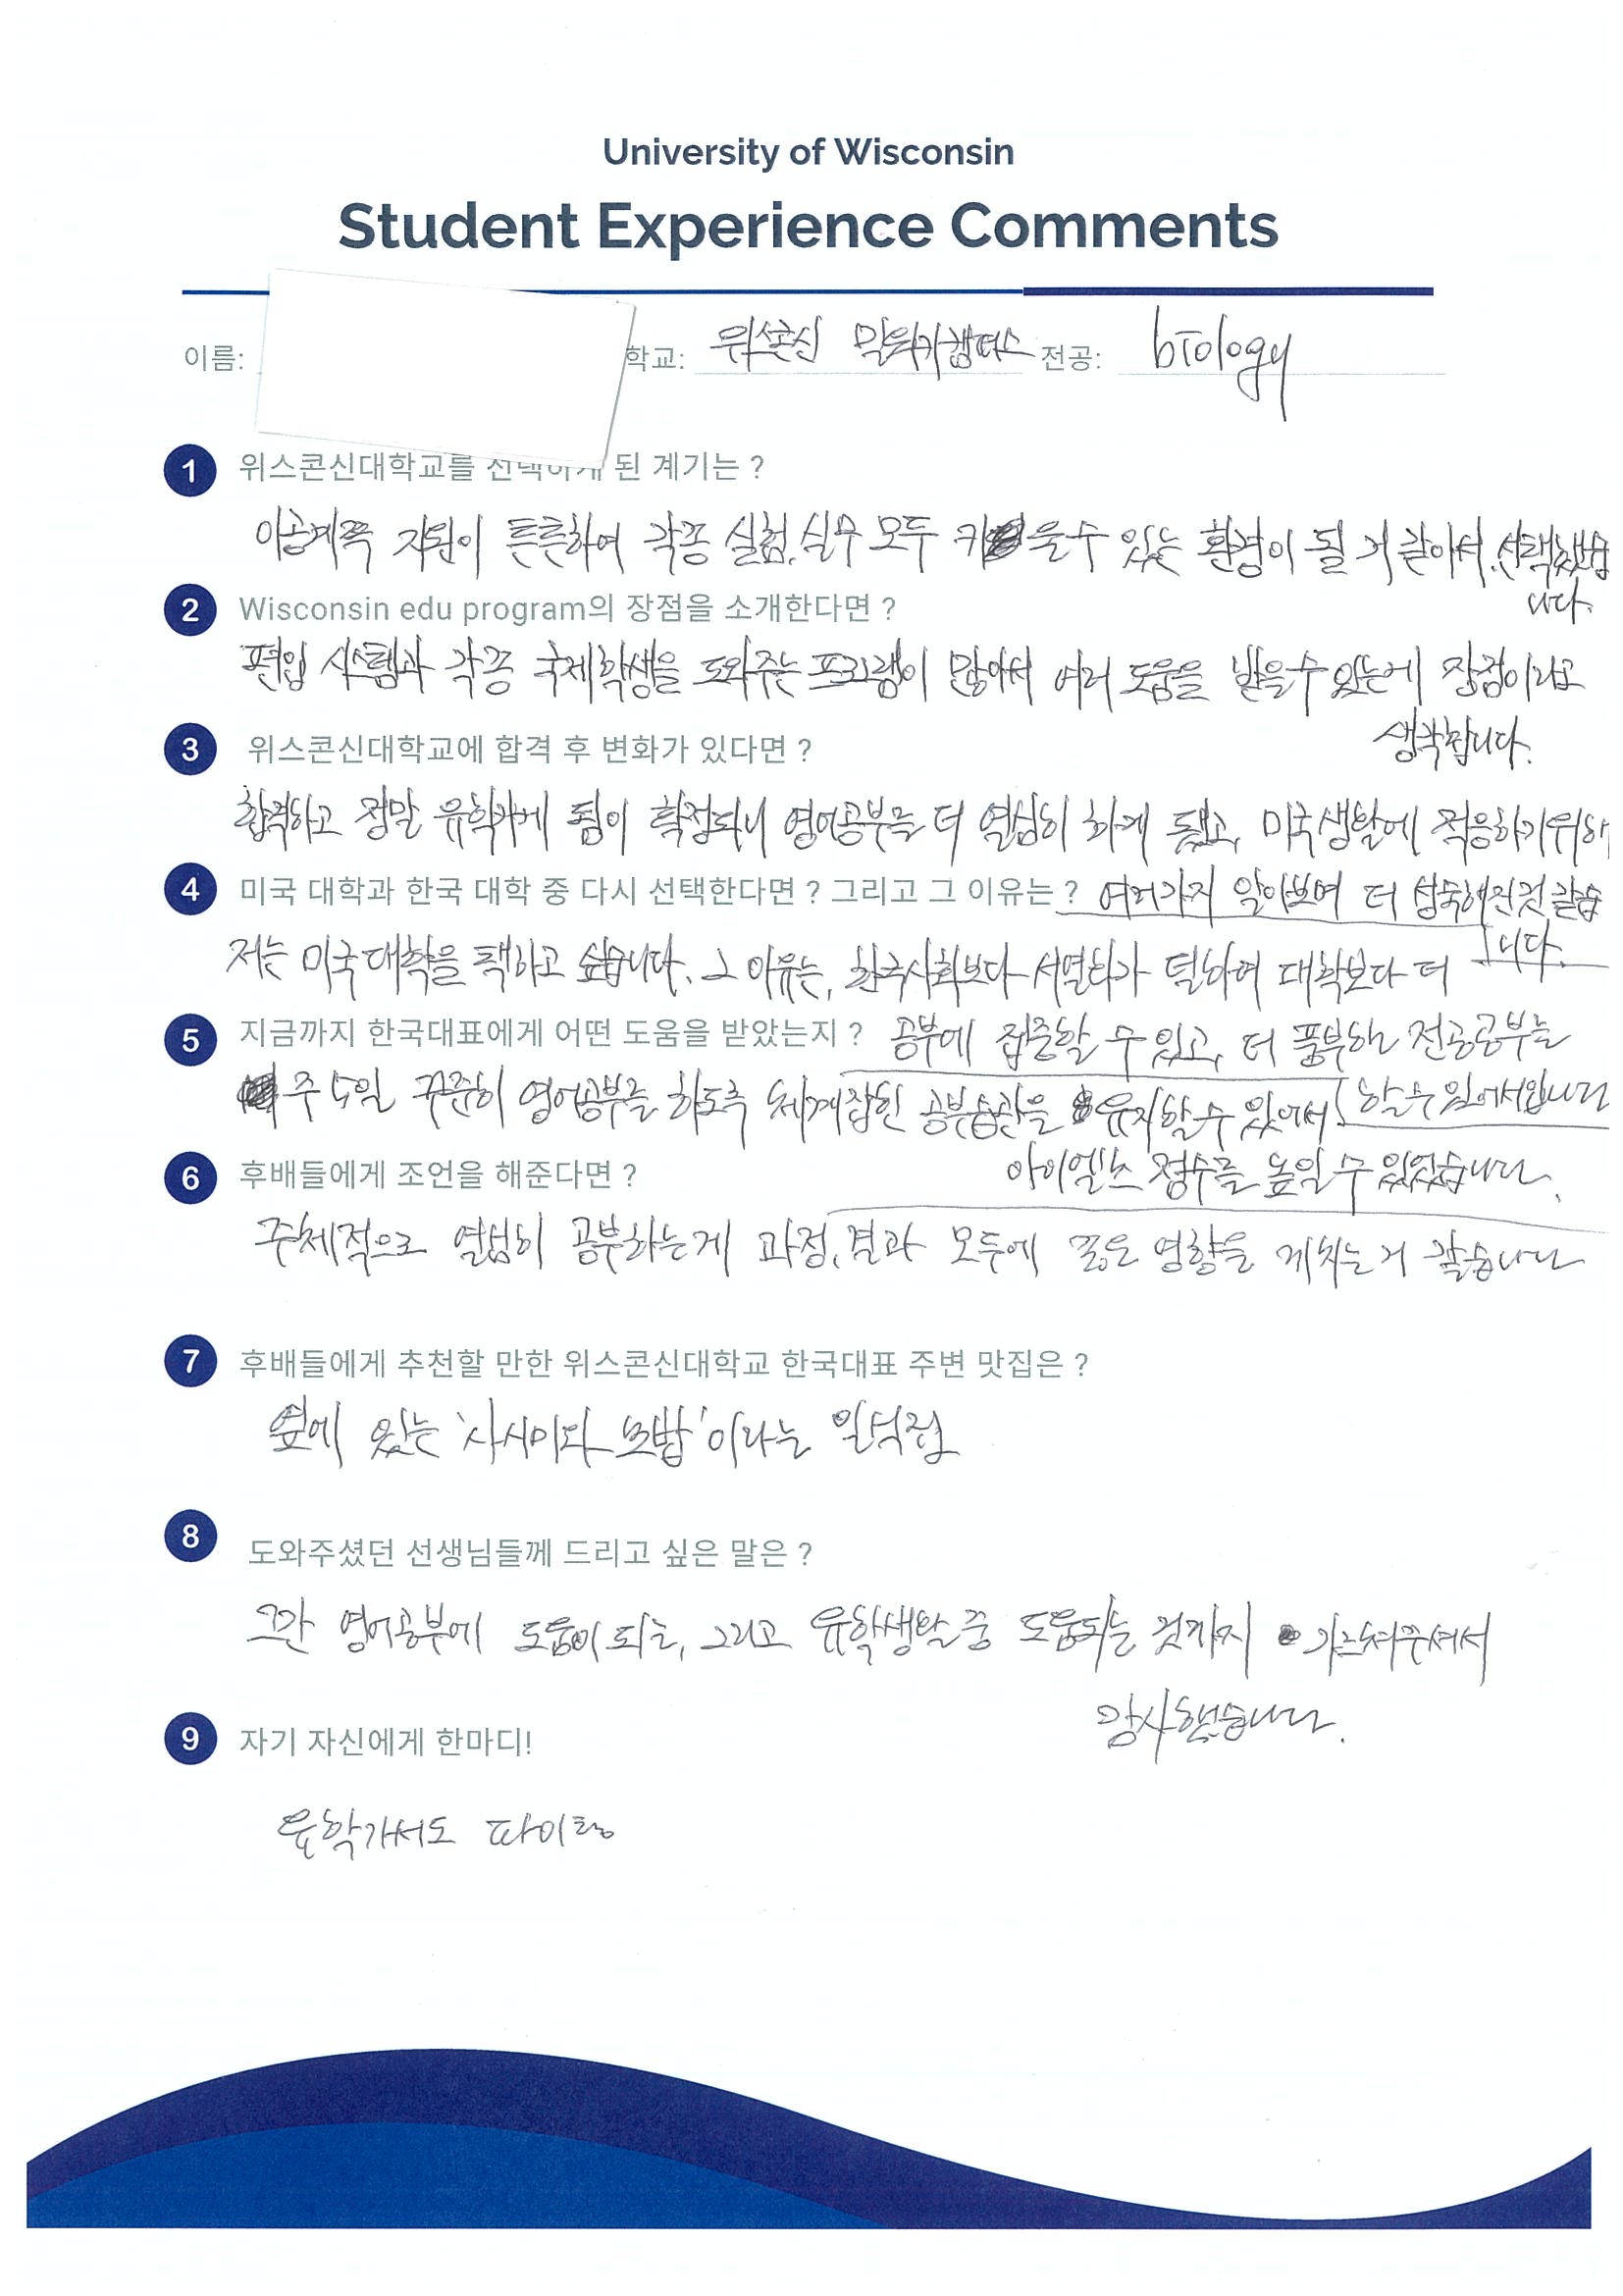 University of Wisconsin
Student Experience Comments
이름: 학교: 위스콘신 밀워키캠퍼스 전공: biology
1 위스콘신대학교를 선택하게 된 계기는 ?
이공계쪽 지원이 튼튼하여 각종 실험, 실무 모두 키울 수 있는 환경이 될 거 같아서 선택했습
니다.
2 Wisconsin edu program의 장점을 소개한다면 ?
편입 시스템과 각종 국제학생을 도와주는 프로그램이 많아서 여러 도움을 받을 수 있는게 장점이라고
생각합니다.
3 위스콘신대학교에 합격 후 변화가 있다면 ?
합격하고 정말 유학가게 됨이 확정되니 영어공부를 더 열심히 하게 됐고, 미국생활에 적응하기위해
4 미국 대학과 한국 대학 중 다시 선택한다면 ? 그리고 그 이유는 ?
여러가지 알아보며 더 성숙해진것 같습
니다.
저는 미국대학을 택하고 싶습니다. 그 이유는, 한국사회보다 서열화가 덜하여 대학보다 더
5 지금까지 한국대표에게 어떤 도움을 받았는지 ?
공부에 집중할 수 있고, 더 풍부한 전공공부를
할 수 있어서입니다
주 5일 꾸준히 영어공부를 하도록 체계잡힌 공부습관을 유지할 수 있어서
아이엘츠 점수를 높일 수 있었습니다.
6 후배들에게 조언을 해준다면 ?
주체적으로 열심히 공부하는게 과정, 결과 모두에 좋은 영향을 끼치는 거 같습니다
7 후배들에게 추천할 만한 위스콘신대학교 한국대표 주변 맛집은 ?
옆에 있는 '사시미와 초밥'이라는 일식점
8 도와주셨던 선생님들께 드리고 싶은 말은 ?
그간 영어공부에 도움이 되는, 그리고 유학생활 중 도움되는 것까지 가르쳐주셔서
감사했습니다.
9 자기 자신에게 한마디!
유학가서도 파이팅